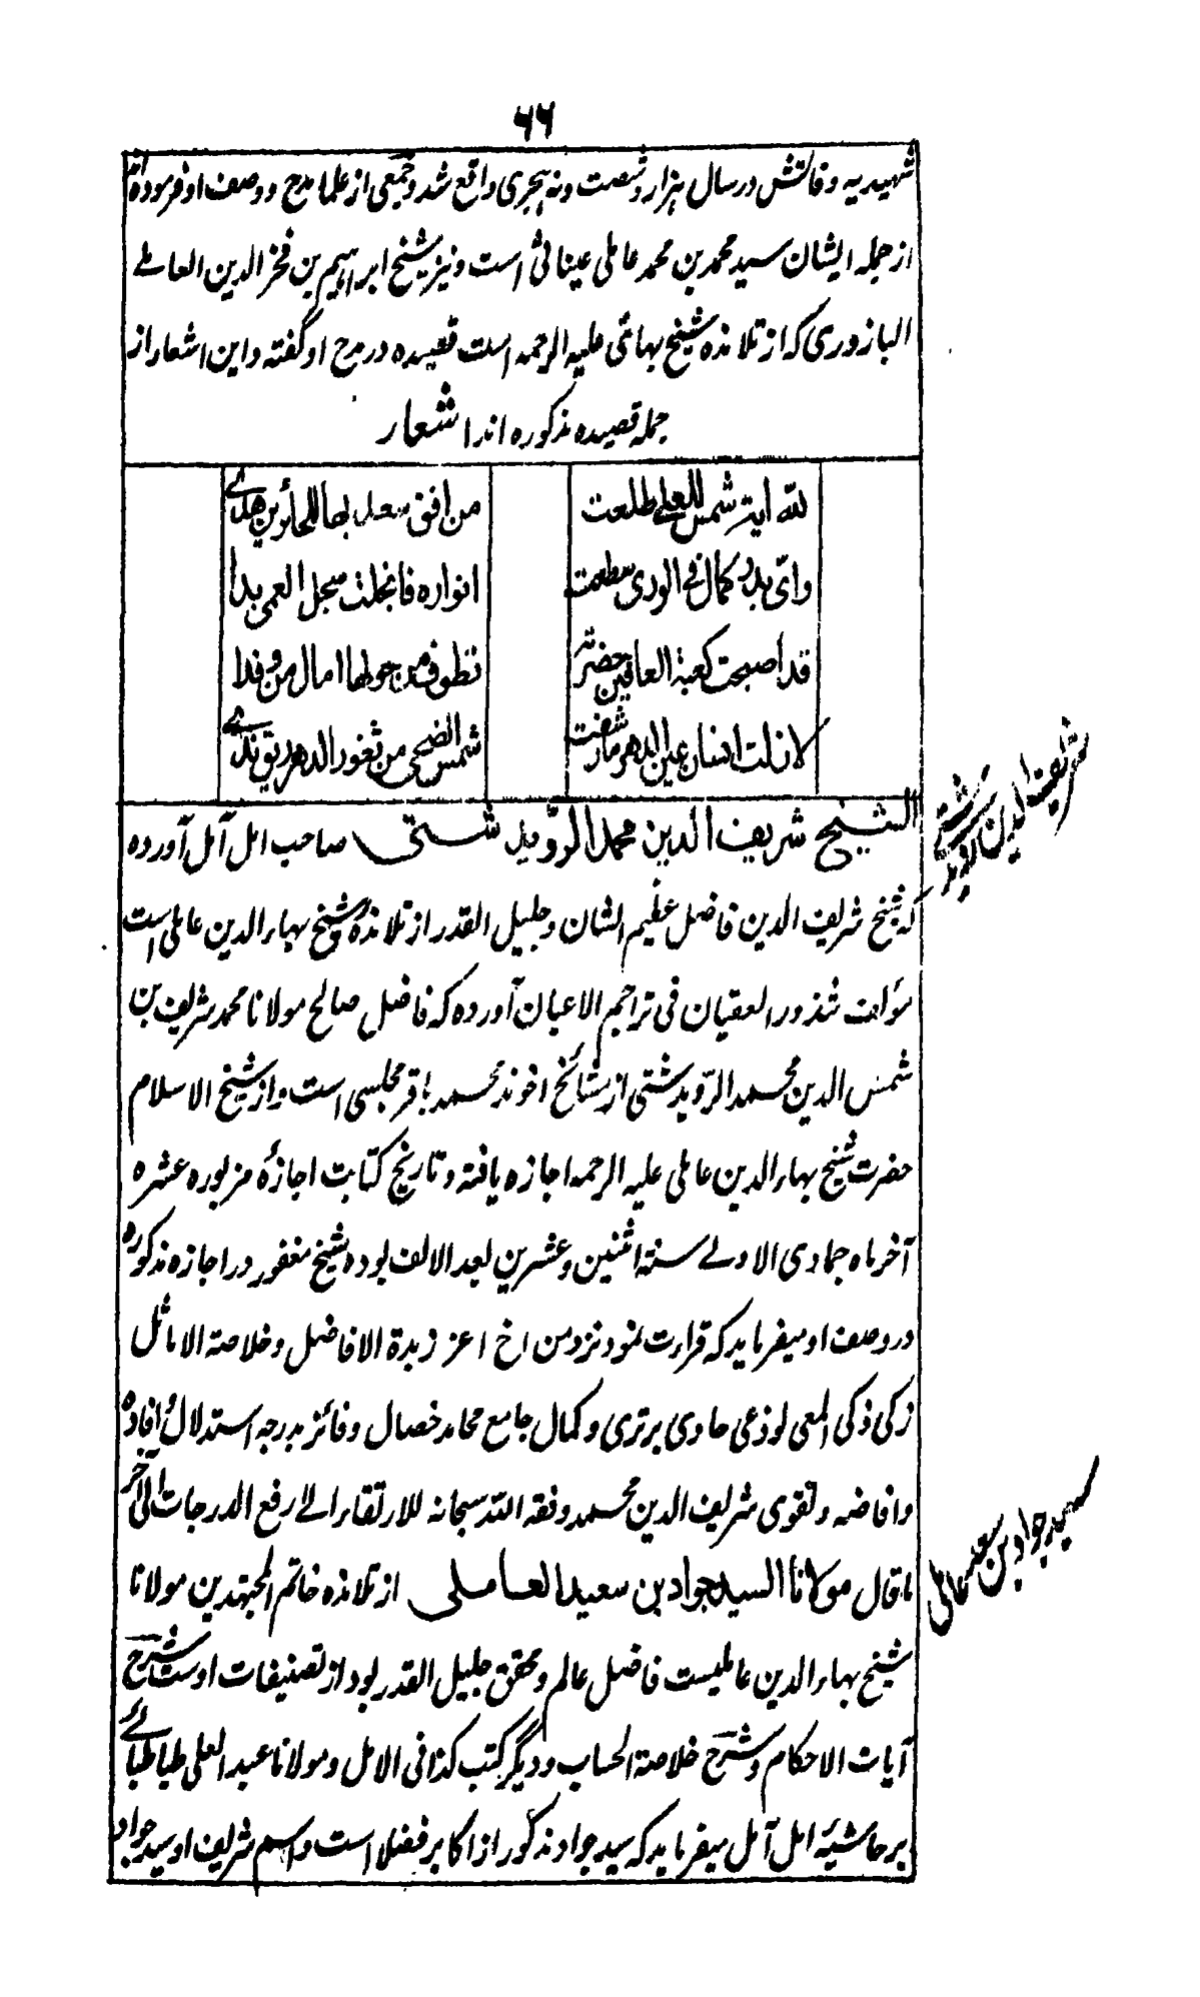 ۶۶
شهیدیه وفاتش در سال هزار و شصت و نه هجری واقع شد و جمعی از علما مدح و وصف او فرموده اند
از جمله ایشان سید محمد بن محمد عاملی عیناثی است و نیز شیخ ابراهیم بن فخر الدین العاملے
البازوری که از تلامذه شیخ بهائی علیه الرحمه است قصیده در مدح او گفته و این اشعار از
جمله قصیده مذکوره اند اشعار
لله ایة شمس للعلی طلعت من افق سعد بها للحائرین هدے
وای بدر کمال فی الوری سطعت انواره فانجلت سجل العمی بدا
قد أصبحت کعبة العافین حضرته تطوف من حولها امال من وفدا
لا زلت انسان عین الدهر ما رشفت شمس الضحی من ثغور الدهر ریق ندے
الشیخ شریف الدین محمد الرویدشتی صاحب امل آمل آورده
که شیخ شریف الدین فاضل عظیم الشان و جلیل القدر از تلامذه شیخ بهاء الدین عاملی است
مؤلف شذور العقیان فی تراجم الاعیان آورده که فاضل صالح مولانا محمد شریف بن
شمس الدین محمد الرویدشتی از مشائخ اخوند محمد باقر مجلسی است و از شیخ الاسلام
حضرت شیخ بهاء الدین عاملی علیه الرحمه اجازه یافته و تاریخ کتابت اجازهٔ مزبوره عشره
آخر ماه جمادی الاولے سنة اثنین و عشرین بعد الالف بوده شیخ مغفور در اجازه مذکوره
در وصف او میفرماید که قراءت نمود نزد من اخ اعز زبدة الافاضل و خلاصة الاماثل
زکی ذکی المعی لوذعی حاوی برتری و کمال جامع محامد خصال و فائز بدرجه استدلال و افاده
و افاضه و تقوی شریف الدین محمد وفقه الله سبحانه للارتقاء الے ارفع الدرجات الی آخر
ما قال مولانا السید جواد بن سعید العاملی از تلامذه خاتم المجتهدین مولانا
شیخ بهاء الدین عاملیست فاضل عالم و محقق جلیل القدر بود از تصنیفات اوست شرح
آیات الاحکام و شرح خلاصة الحساب و دیگر کتب کذا فی الامل و مولانا عبد العلی طباطبائے
بر حاشیهٔ امل آمل میفرماید که سید جواد مذکور از اکابر فضلا است و اسم شریف او سید جواد
شریف الدین محمد رویدشتی
سید جواد بن سعید عاملی